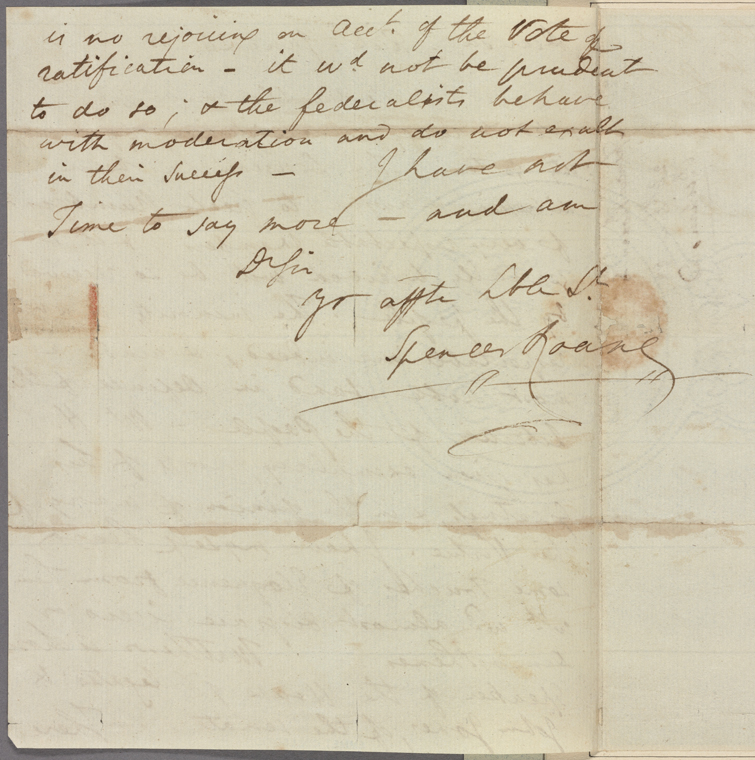 is no rejoicing on Acct. of the Vote of
ratification - it wd not be prudent
to do so; & the federalists behave
with moderation and do not exult
in their success - I have not
Time to say more - and am
Dr Sir
yr affte Hble St
Spencer Roane